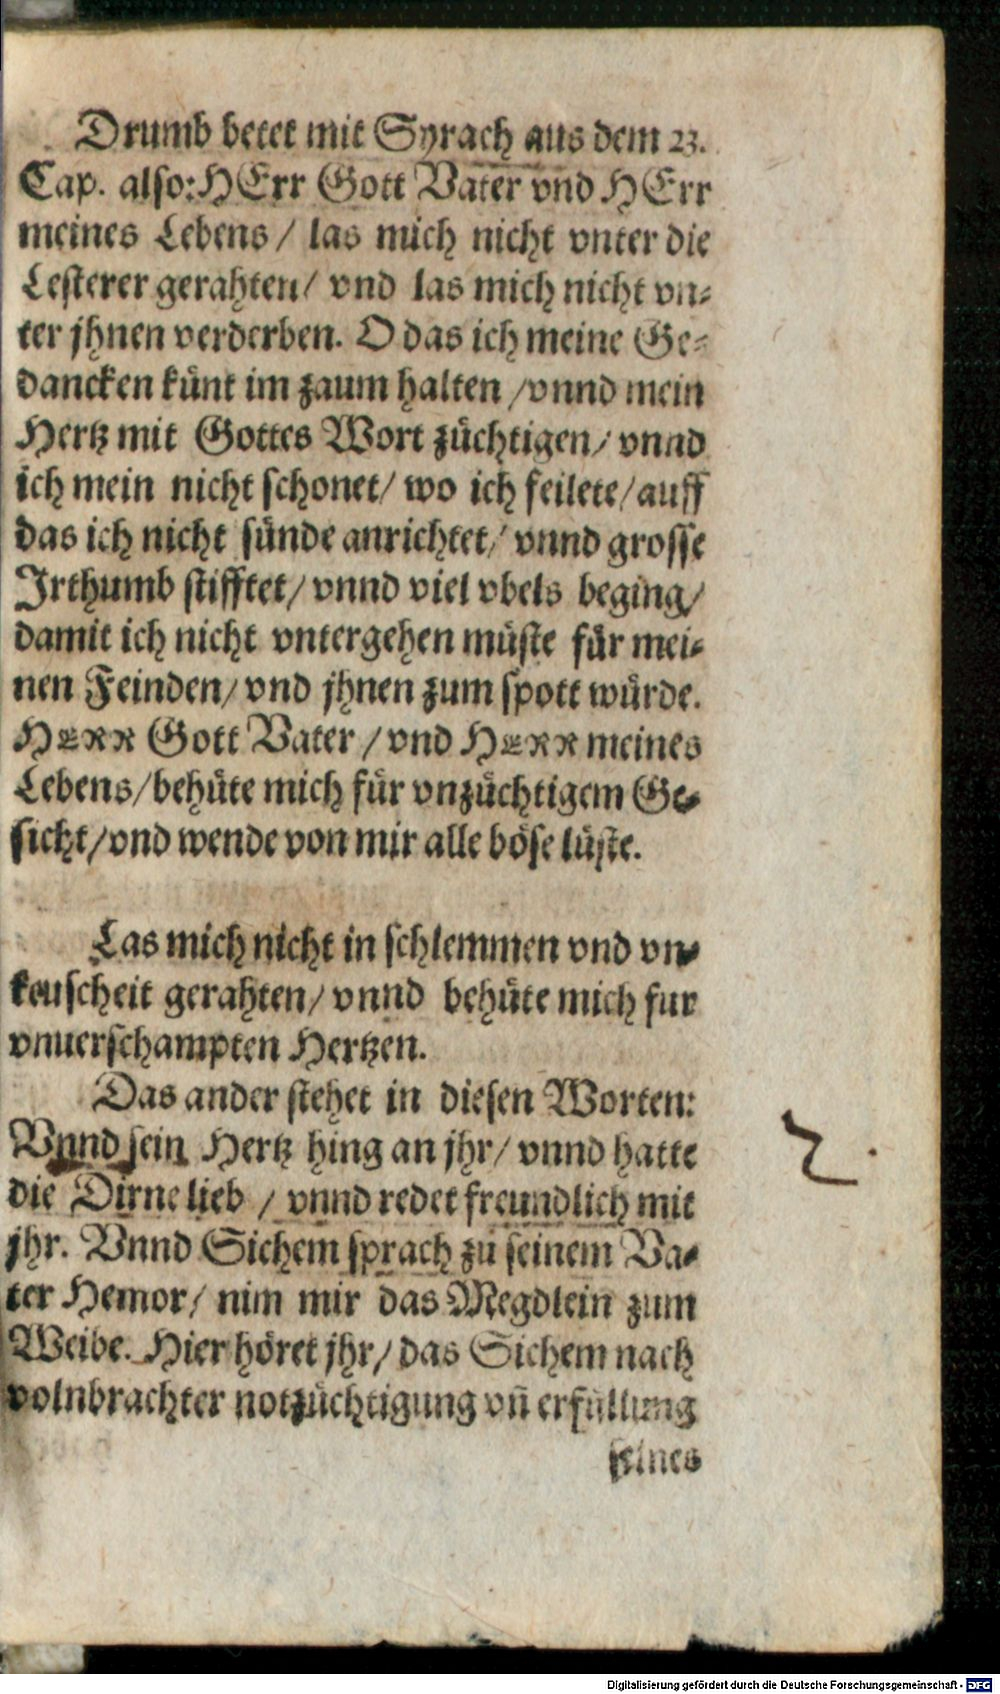 Drumb betet mit Syrach aus dem 23.
Cap. also: HErr Gott Vater vnd HErr
meines Lebens / las mich nicht vnter die
Lesterer gerahten / vnd las mich nicht vn-
ter jhnen verderben. O das ich meine Ge-
dancken künt im zaum halten / vnnd mein
Hertz mit Gottes Wort züchtigen / vnnd
ich mein nicht schonet / wo ich feilete / auff
das ich nicht sünde anrichtet / vnnd grosse
Irthumb stifftet / vnnd viel vbels beging /
damit ich nicht vntergehen müste für mei-
nen Feinden / vnd jhnen zum spott würde.
HERR Gott Vater / vnd HERR meines
Lebens / behüte mich für vnzüchtigem Ge-
sicht / vnd wende von mir alle böse lüste.
Las mich nicht in schlemmen vnd vn-
keuscheit gerahten / vnnd behüte mich fur
vnuerschampten Hertzen.
Das ander stehet in diesen Worten:
Vnnd sein Hertz hing an jhr / vnnd hatte
die Dirne lieb / vnnd redet freundlich mit
jhr. Vnnd Sichem sprach zu seinem Va-
ter Hemor / nim mir das Megdlein zum
Weibe. Hier höret jhr / das Sichem nach
volnbrachter notzüchtigung vñ erfüllung
seines
2.
Digitalisierung gefördert durch die Deutsche Forschungsgemeinschaft - DFG